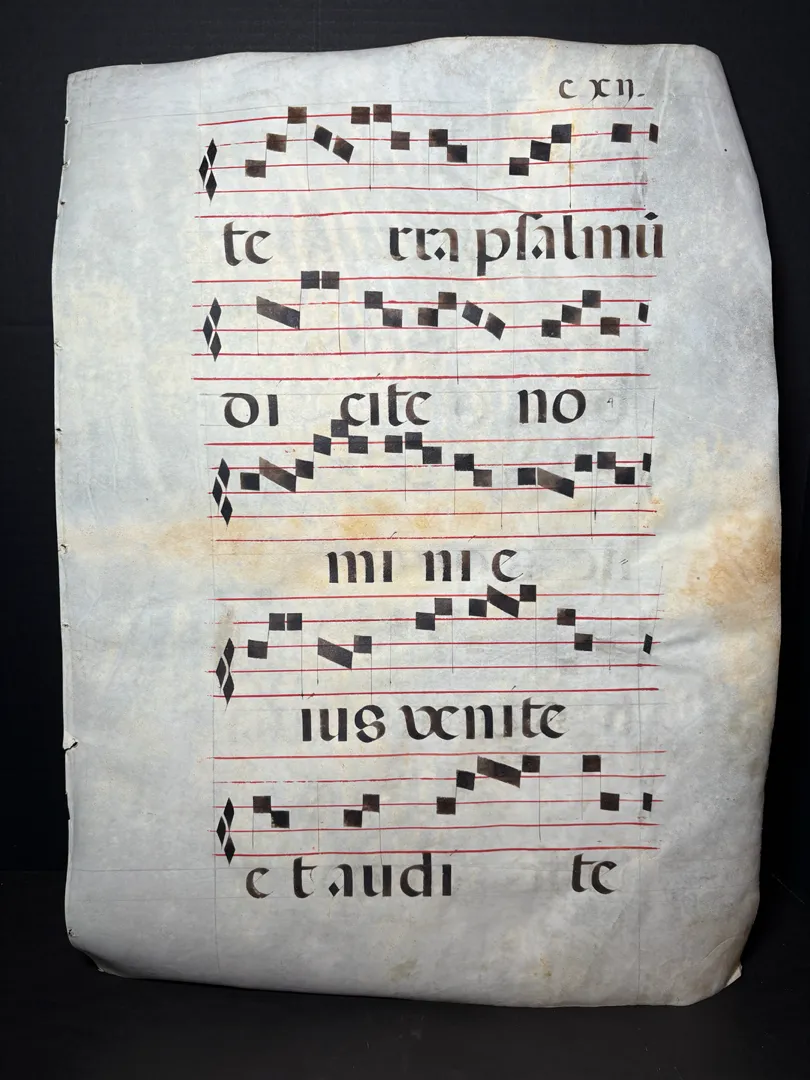 c xij.
te rra psalmū
di cite no
mi ni e
ius venite
et audi te